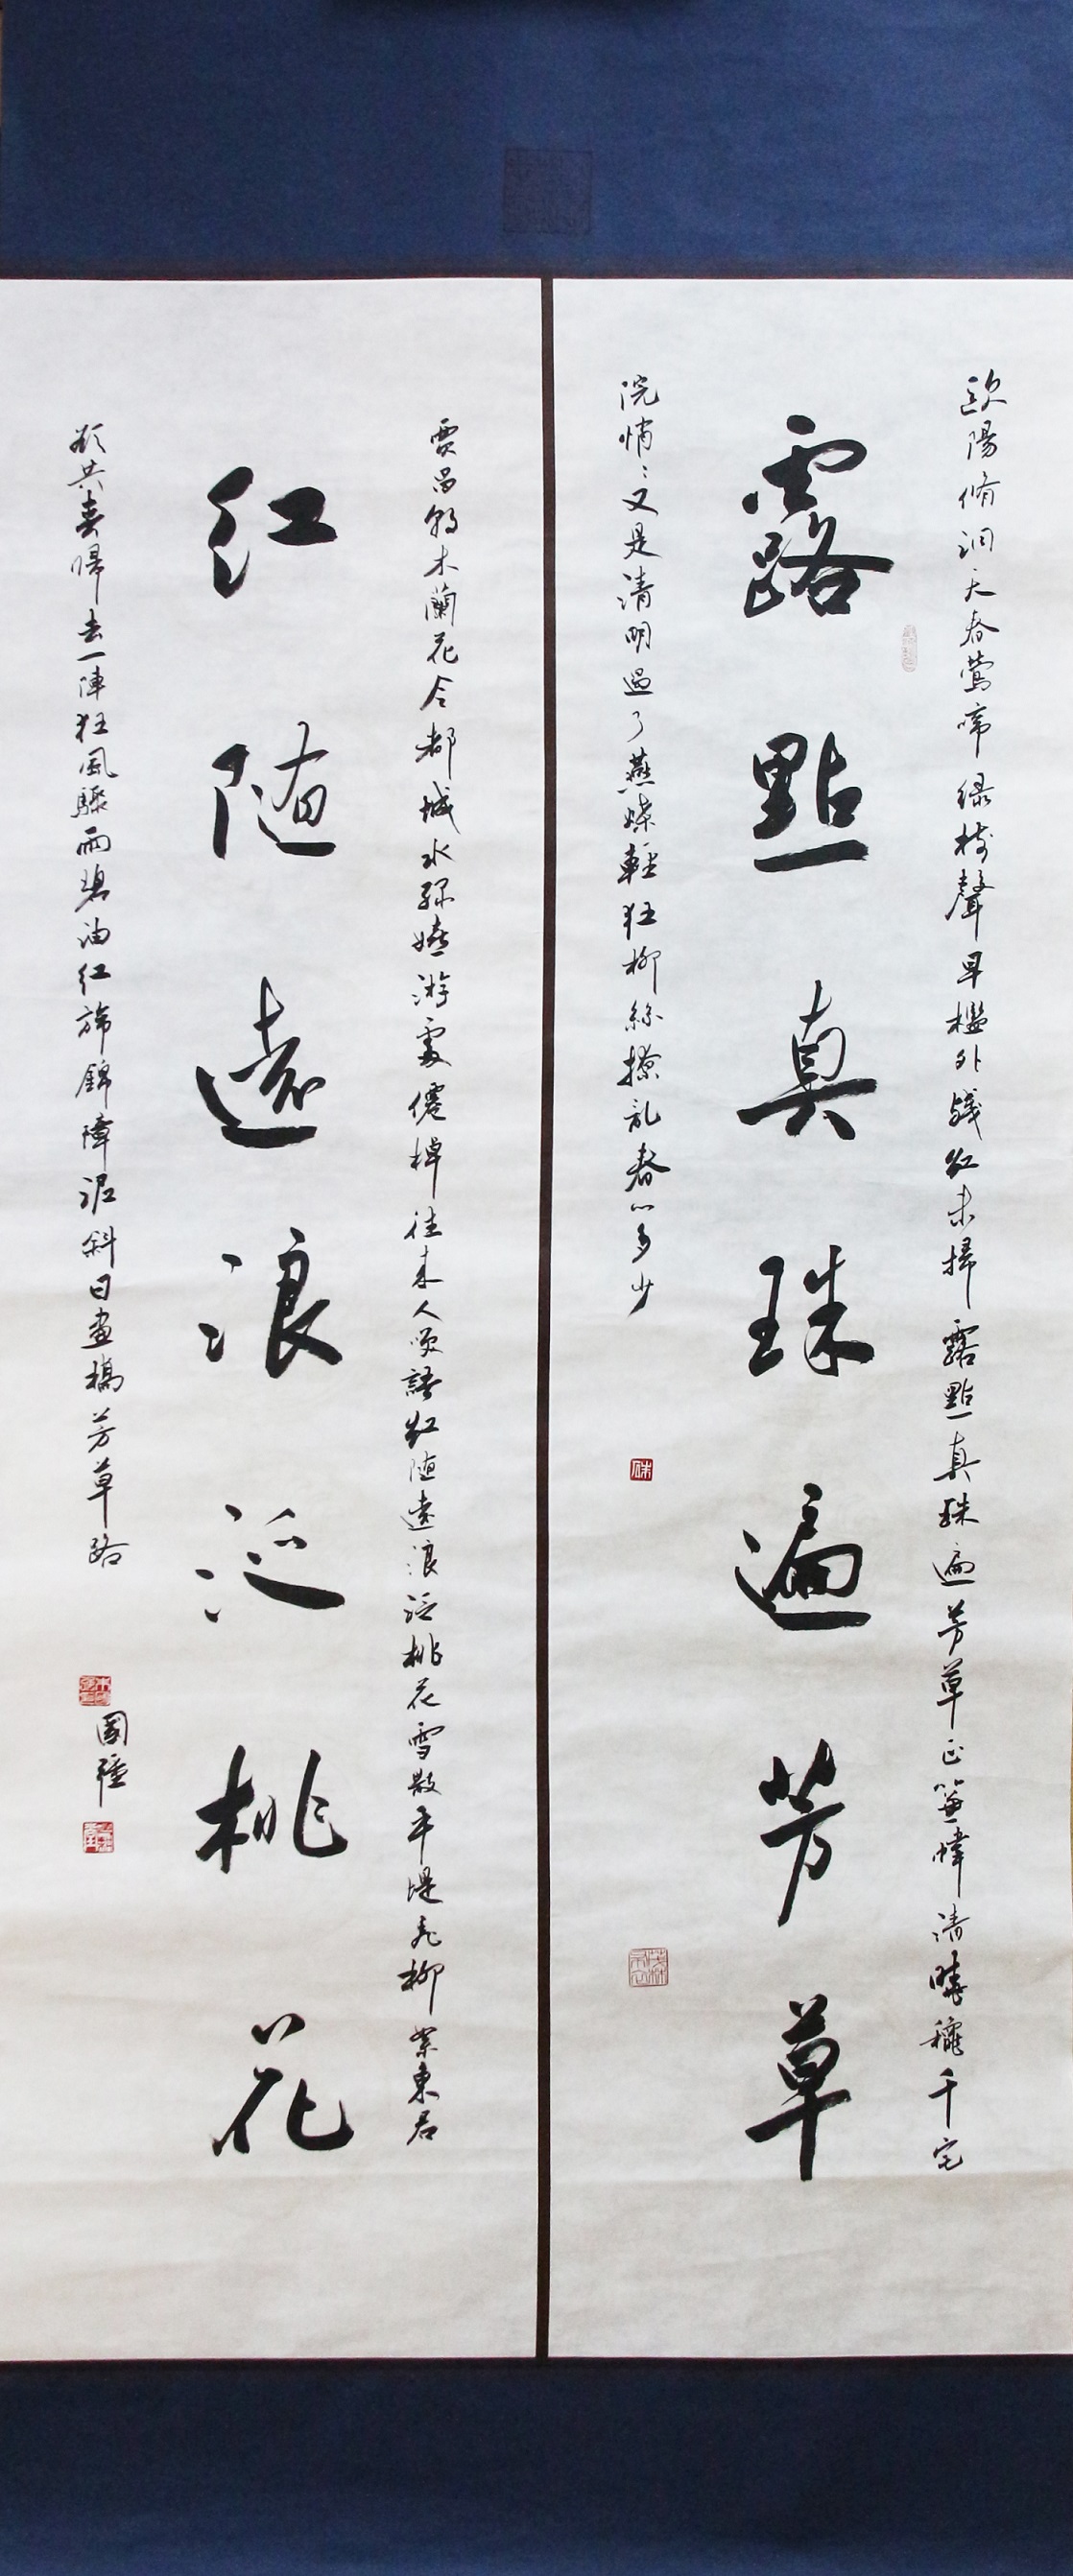 歐陽脩洞天春鶯啼緑樹聲早檻外殘紅未掃露點真珠遍芳草正簾幃清曉鞦千宅
露點真珠遍芳草
院悄〻又是清明過了燕蝶輕狂柳絲撩亂春心多少
賈昌朝木蘭花令都城水綠嬉游處僊棹往來人笑語紅随遠浪泛桃花雪散平堤飛柳絮東君
红随遠浪泛桃花
欲共春歸去一陣狂風驟雨碧油红旆錦障泥斜日畫橋芳草路
國強